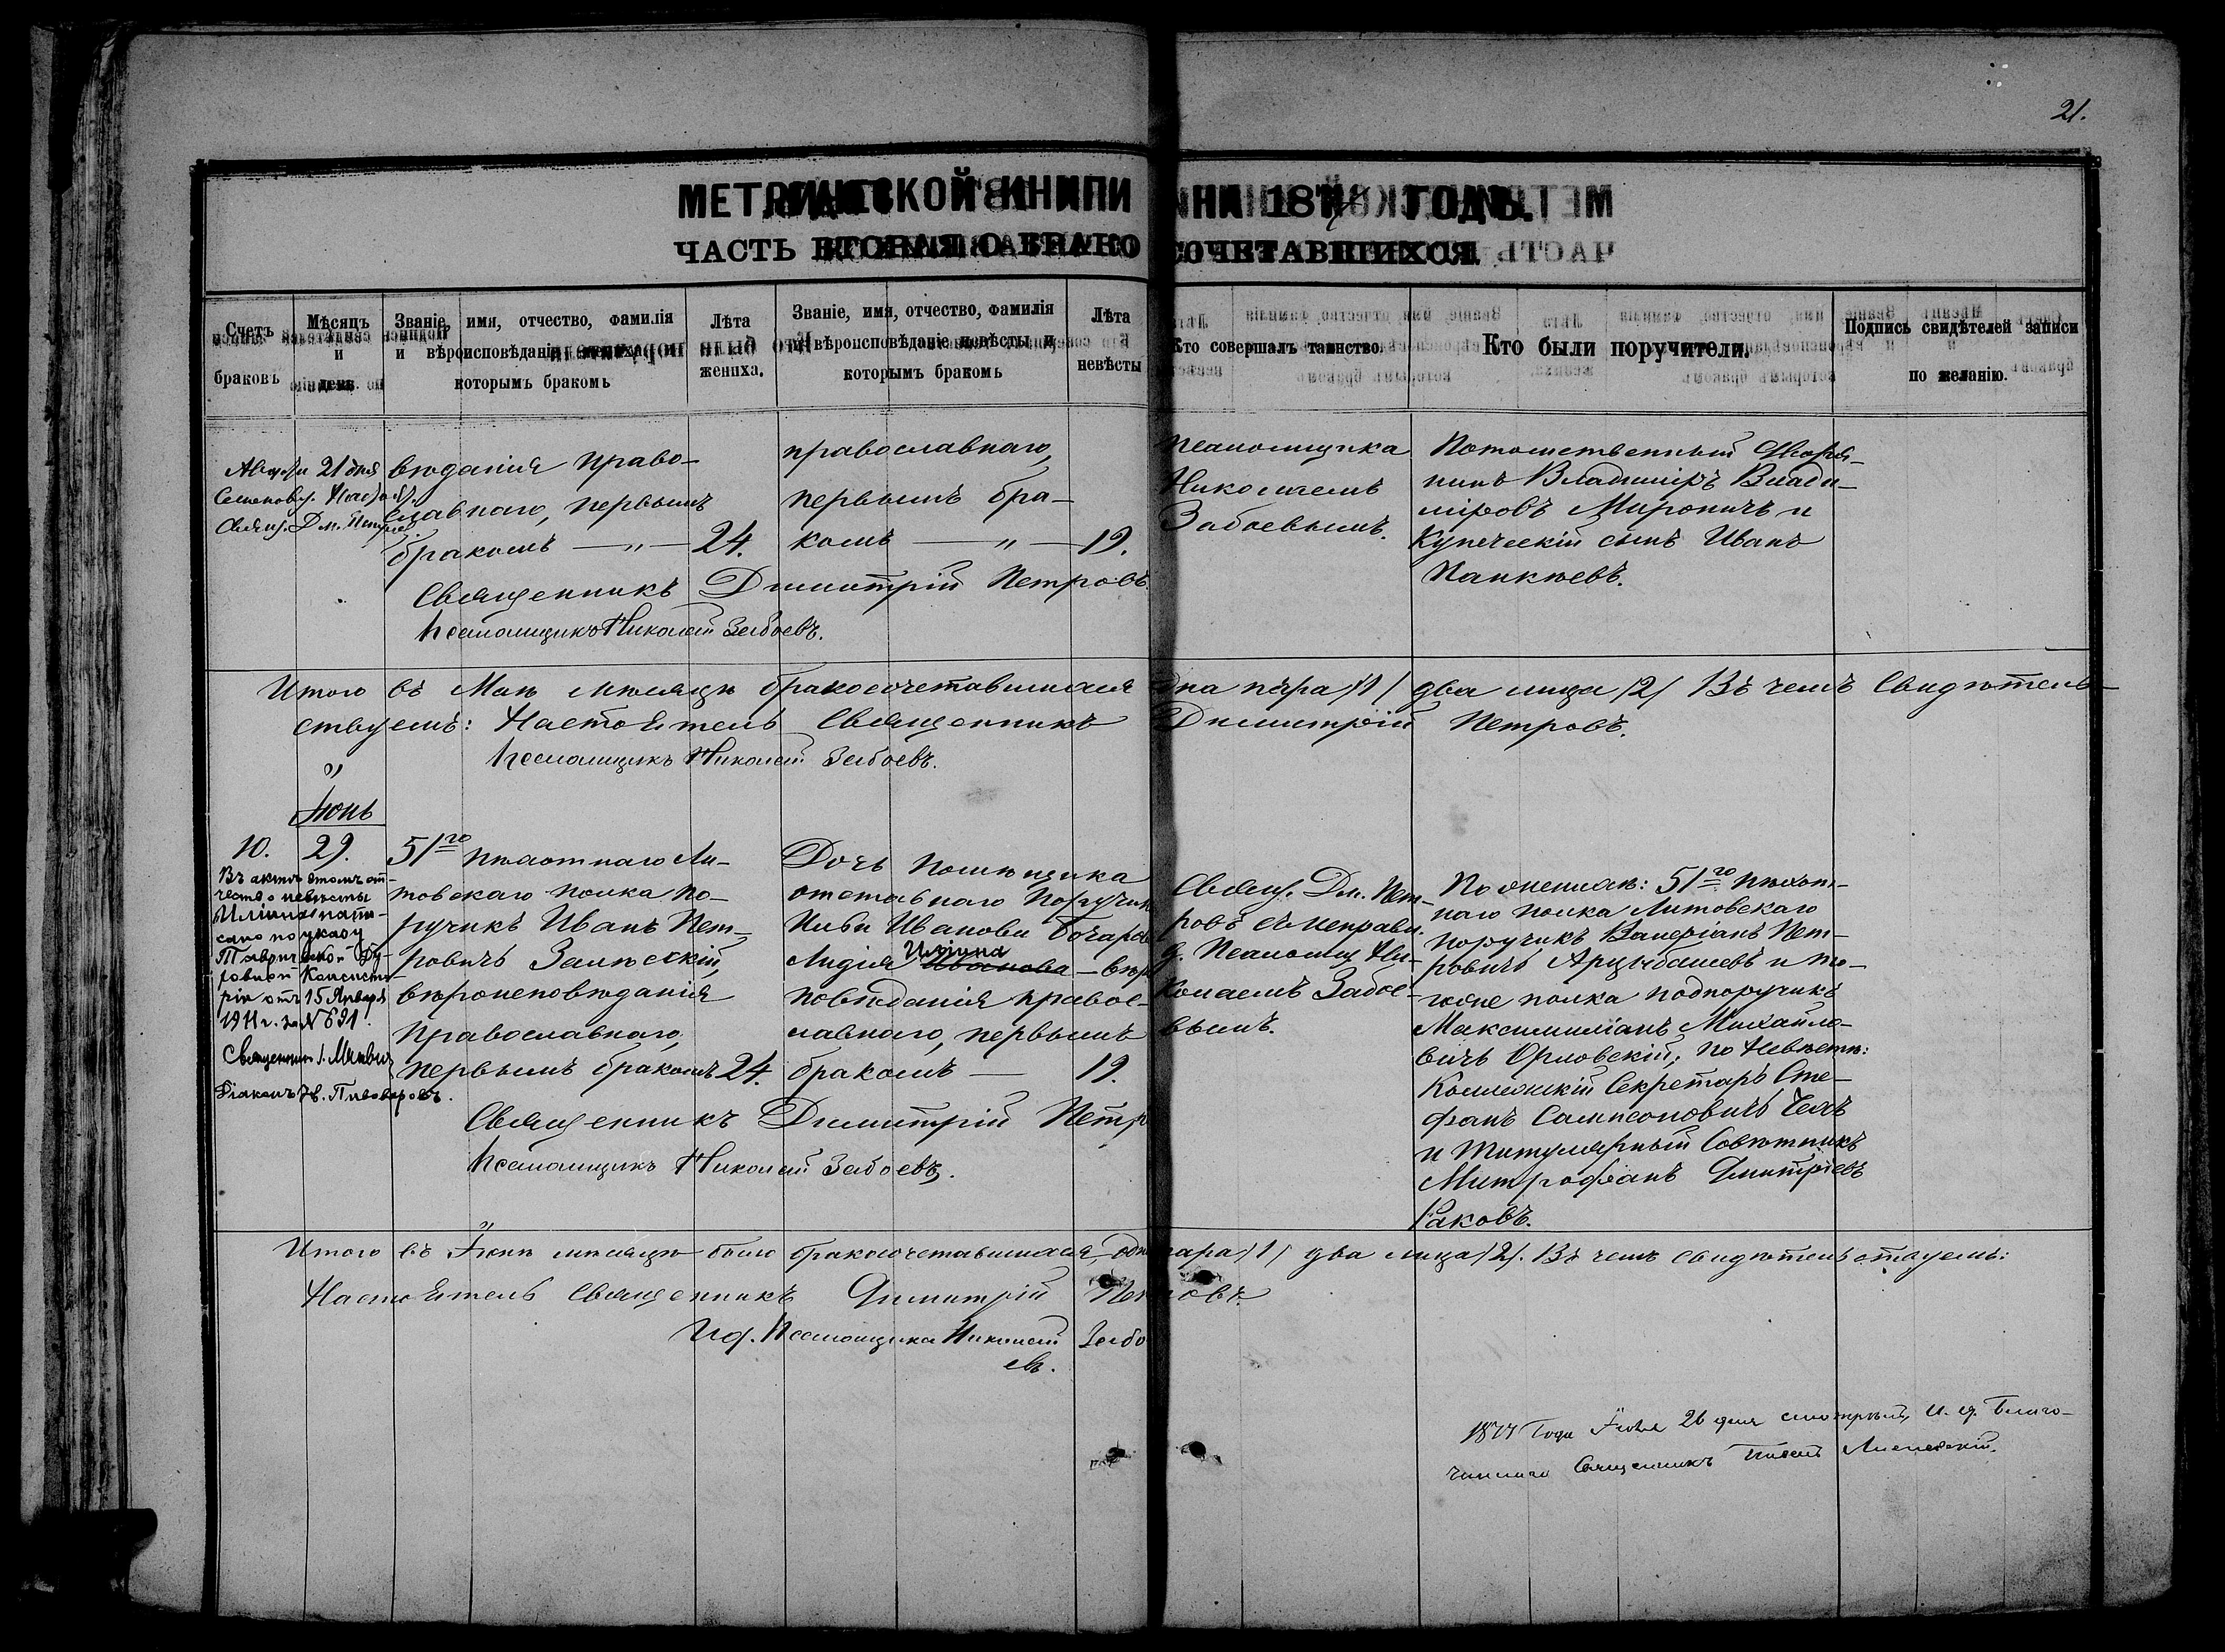 21.
МЕТРИЧЕСКОЙ КНИГИ НА 1877 ГОДЪ.
ЧАСТЬ ВТОРАЯ О БРАКОСОЧЕТАВШИХСЯ.
Счетъ браковъ
Мѣсяцъ и день
Званіе, имя, отчество, фамилія
и вѣроисповѣданіе жениха и
которымъ бракомъ
Лѣта жениха.
Званіе, имя, отчество, фамилія
и вѣроисповѣданіе невѣсты и
которымъ бракомъ
Лѣта невѣсты
Кто совершалъ таинство.
Кто были поручители.
Подпись свидѣтелей записи
по желанію.
21 дня
Свящ. Дм. Петров
вѣданія право-
славнаго, первымъ
бракомъ — „ — 24.
православнаго,
первымъ бра-
комъ — „ — 19.
псаломщика
Николаемъ
Забоевымъ.
Потомственный Дворя-
нинъ Владиміръ Влади-
міровъ Мировичъ и
Купеческій сынъ Иванъ
Священникъ Димитрій Петровъ
Псаломщикъ Николай Забоевъ.
Итого въ Маѣ мѣсяцѣ бракосочетавшихся одна пара /1/ два лица /2/ Въ чемъ свидѣтель-
ствуемъ: Настоятель Священникъ Димитрій Петровъ.
Псаломщикъ Николай Забоевъ.
„
Іюнь
10. 29.
Въ актѣ этомъ от-
чество невѣсты
Ильина напи-
сано по указу
Таврической Ду-
ховной Консисто
ріи отъ 15 Января
1911 г. за № 691.
Священникъ І.
Діаконъ Пивоваровъ.
51го пѣхотнаго Ли-
товскаго полка по-
ручикъ Иванъ Пет-
ровичъ Залѣскій,
вѣроисповѣданія
православнаго,
первымъ бракомъ 24.
Дочь помѣщика
отставнаго Поручик
Ильи Иванова Бочаров
Лидія Ильина Иванова — вѣро
повѣданія правос-
лавнаго, первымъ
бракомъ — 19.
Свящ. Дм. Пет-
ровъ съ исправ.
д. Псаломщ. Ни-
колаемъ Забое-
вымъ.
По женихѣ: 51го пѣхот-
наго полка Литовскаго
поручикъ Валеріанъ Пет-
ровичъ Арцыбашевъ и то-
гоже полка подпоручикъ
Максимиліанъ Михайло-
вичъ Орловскій; по Невѣстѣ:
Коллежскій Секретарь Сте-
фанъ Сампсоновичъ
и Титулярный Совѣтникъ
Митрофанъ Дмитріевъ
Раковъ.
Священникъ Димитрій Петр
Псаломщикъ Николай Забоевъ.
Итого въ Іюнѣ мѣсяцѣ было бракосочетавшихся, одна пара /1/ два лица /2/. Въ чемъ свидѣтельствуемъ:
Настоятель Священникъ Димитрій Петровъ.
И. д. Псаломщика Николай Забо
евъ.
1877 Года Іюля 26 дня смотрѣлъ, И. д. Благо-
чиннаго Священникъ